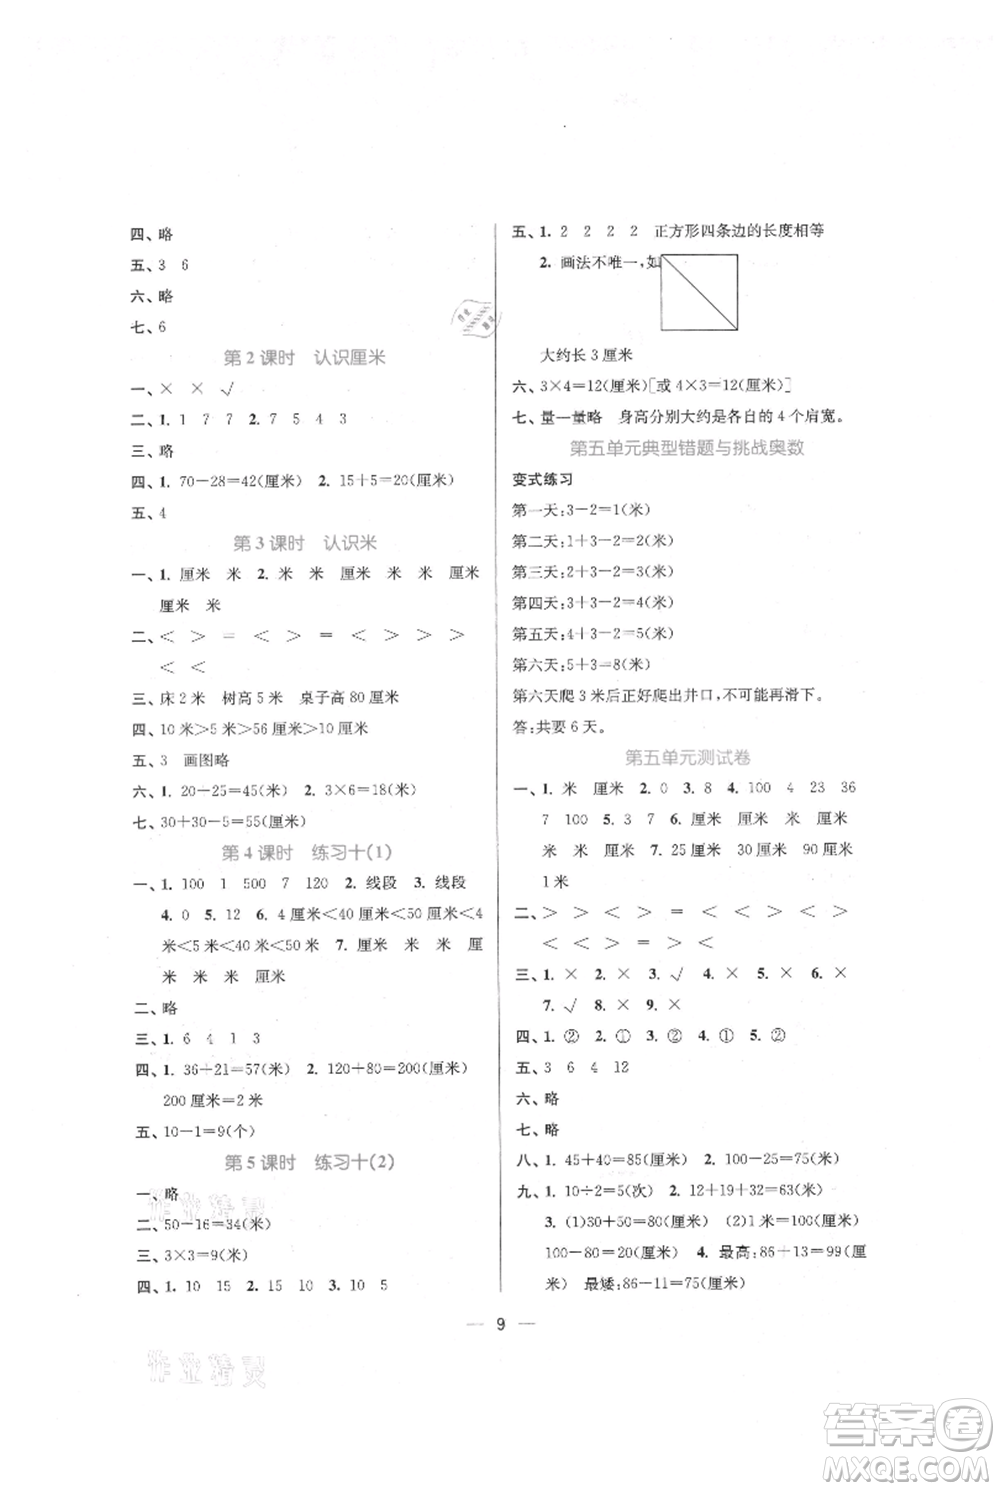 四、略
五、3 6
六、略
七、6
第 2 课时 认识厘米
一、× × √
二、1. 1 7 7 2. 7 5 4 3
三、略
四、1. 70－28＝42(厘米) 2. 15＋5＝20(厘米)
五、4
第 3 课时 认识米
一、1. 厘米 米 2. 米 米 厘米 米 米 厘米
厘米 米
二、＜ ＞ ＝ ＜ ＞ ＝ ＜ ＞ ＞ ＞
＜ ＜
三、床 2 米 树高 5 米 桌子高 80 厘米
四、10 米＞5 米＞56 厘米＞10 厘米
五、3 画图略
六、1. 20－25＝45(米) 2. 3×6＝18(米)
七、30＋30－5＝55(厘米)
第 4 课时 练习十(1)
一、1. 100 1 500 7 120 2. 线段 3. 线段
4. 0 5. 12 6. 4 厘米＜40 厘米＜50 厘米＜4
米＜5 米＜20 米＜50 米 7. 厘米 米 米 厘
米 米 米 厘米
二、略
三、1. 6 4 1 3
四、1. 36＋21＝57(厘米) 2. 120＋80＝200(厘米)
200 厘米＝2 米
五、10－1＝9(个)
第 5 课时 练习十(2)
一、略
二、50－16＝34(米)
三、3×3＝9(米)
四、1. 10 15 2. 15 10 3. 10 5
五、1. 2 2 2 2 正方形四条边的长度相等
2. 画法不唯一,如
大约长 3 厘米
六、3×4＝12(厘米)[或 4×3＝12(厘米)]
七、量一量略 身高分别大约是各自的 4 个肩宽。
第五单元典型错题与挑战奥数
变式练习
第一天:3－2＝1(米)
第二天:1＋3－2＝2(米)
第三天:2＋3－2＝3(米)
第四天:3＋3－2＝4(米)
第五天:4＋3－2＝5(米)
第六天:5＋3＝8(米)
第六天爬 3 米后正好爬出井口,不可能再滑下。
答:共要 6 天。
第五单元测试卷
一、1. 米 厘米 2. 0 3. 8 4. 100 4 23 36
7 100 5. 3 7 6. 厘米 厘米 米 厘米
米 米 厘米 7. 25 厘米 30 厘米 90 厘米
1 米
二、＞ ＞ ＜ ＞ ＝ ＜ ＜ ＞ ＜ ＞
＜ ＜ ＜ ＞ ＝ ＞ ＜
三、1. × 2. × 3. √ 4. × 5. × 6. ×
7. √ 8. × 9. ×
四、1. ② 2. ① 3. ② 4. ① 5. ②
五、3 6 4 12
六、略
七、略
八、1. 45＋40＝85(厘米) 2. 100－25＝75(厘米)
九、1. 10÷2＝5(次) 2. 14＋19＝33(米)
3. (1)30＋50＝80(厘米) (2)1 米＝100(厘米)
100－80＝20(厘米) 4. 最高:86＋13＝99(厘
米) 最矮:86－11＝75(厘米)
9
作业精灵
作业精灵
答案圈
MXQE.COM